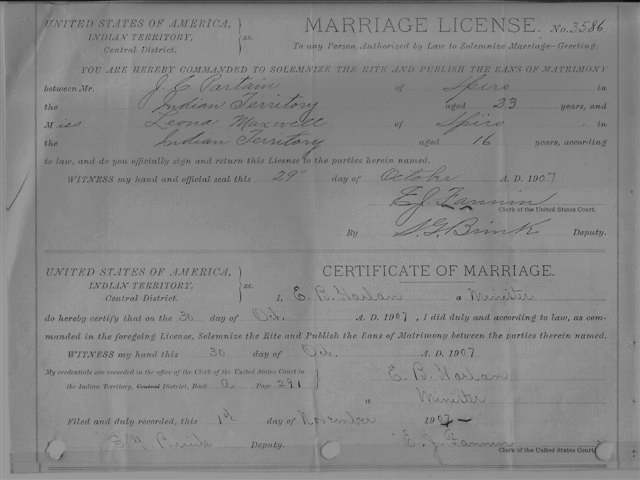 UNITED STATES OF AMERICA, INDIAN TERRITORY, Central District. ss.
MARRIAGE LICENSE. No. 3586
To any Person Authorized by Law to Solemnize Marriage—Greeting:
YOU ARE HEREBY COMMANDED TO SOLEMNIZE THE RITE AND PUBLISH THE BANS OF MATRIMONY
between Mr. J. C. Partain of Spiro in
the Indian Territory aged 23 years, and
Miss Leona Maxwell of Spiro in
the Indian Territory aged 16 years, according
to law, and do you officially sign and return this License to the parties herein named.
WITNESS my hand and official seal this 29" day of October A. D. 1907
E. J. Fannin
Clerk of the United States Court.
By S. G. Brink Deputy.
UNITED STATES OF AMERICA,
INDIAN TERRITORY,
Central District. ss.
CERTIFICATE OF MARRIAGE.
I, E. B. Harlan a Minister
do hereby certify that on the 30 day of Oct. A. D. 1907, I did duly and according to law, as com-
manded in the foregoing License, Solemnize the Rite and Publish the Bans of Matrimony between the parties therein named.
WITNESS my hand this 30 day of Oct. A. D. 1907
My credentials are recorded in the office of the Clerk of the United States Court in
the Indian Territory, Central District, Book A Page 291
E. B. Harlan
a Minister
Filed and duly recorded, this 1st day of November 1907
Deputy. E. J. Fannin
Clerk of the United States Court.